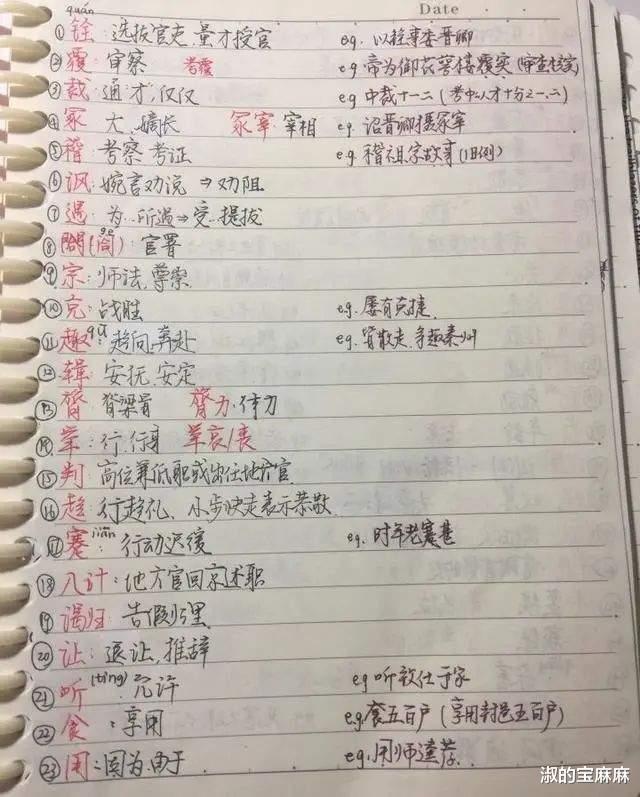 Date
quán
①铨:选拔官吏,量才授官 eg. 以铨事委晋卿
②覆:审察 考覆 eg. 帝为御花萼楼覆实(审查核实)
③裁:通"才",仅仅 eg 中裁十一二(考中人才十分之一、二)
④冢 大、嫡长 冢宰:宰相 eg 诏晋卿摄冢宰
⑤稽:考察、考证 eg. 稽祖宗故事(旧例)
⑥讽:婉言劝说 → 劝阻
⑦遇:为..所遇⇒受..提拔
⑧閤(阁) gé 官署
⑨宗:师法,尊崇
⑩克:战胜 eg. 屡有克捷
⑪趣 qū:趋向,奔赴 eg. 皆散走,争趣秦州
⑫辑:安抚、安定
⑬膂:脊梁骨 膂力:体力
⑭举:行、行事 举哀/丧
⑮判:高位兼低职或出任地方官
⑯趋:行趋礼、小步快走表示恭敬
⑰蹇 jiǎn:行动迟缓 eg. 时年老蹇甚
⑱入计:地方官回京述职
⑲谒归:告假归里
⑳让:退让,推辞
㉑听(tīng) 允许 eg 听致仕于家
㉒食:享用 eg 食五百户(享用封邑五百户)
㉓用:因为、由于 eg. 用师逵荐
淑的宝麻麻